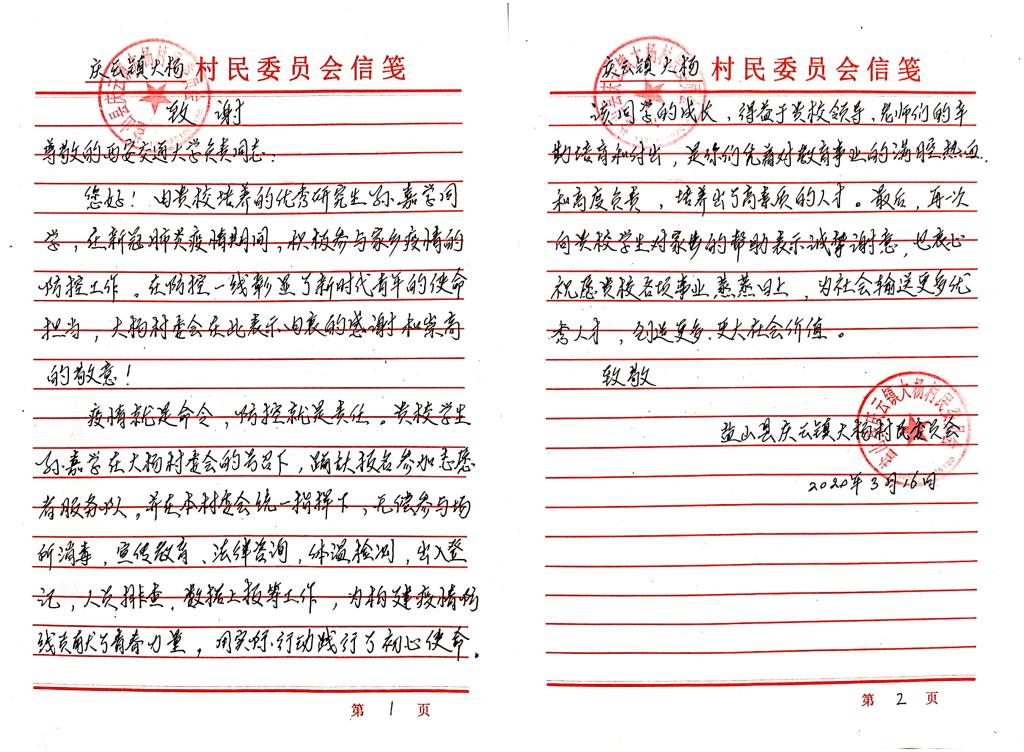 庆云镇大杨 村民委员会信笺
致 谢
尊敬的西安交通大学负责同志：
您好！由贵校培养的优秀研究生孙嘉学同
学，在新冠肺炎疫情期间，积极参与家乡疫情的
防控工作。在防控一线彰显了新时代青年的使命
担当，大杨村委会在此表示由衷的感谢和崇高
的敬意！
疫情就是命令，防控就是责任。贵校学生
孙嘉学在大杨村委会的号召下，踊跃报名参加志愿
者服务队，并在本村委会统一指挥下，无偿参与场
所消毒，宣传教育、法律咨询，体温检测，出入登
记，人员排查、数据上报等工作，为构建疫情防
线贡献了青春力量，用实际行动践行了初心使命。
第 1 页
庆云镇大杨 村民委员会信笺
该同学的成长，得益于贵校领导、老师们的辛
勤培育和付出，是你们凭着对教育事业的满腔热血
和高度负责，培养出了高素质的人才。最后，再一次
向贵校学生对家乡的帮助表示诚挚谢意，也衷心
祝愿贵校各项事业蒸蒸日上，为社会输送更多优
秀人才，创造更多、更大社会价值。
致敬
盐山县庆云镇大杨村民委员会
2020年3月16日
第 2 页